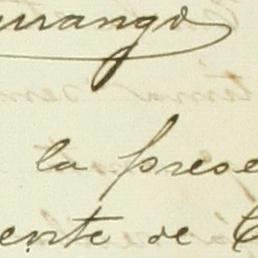 urango
la prese
ente de C